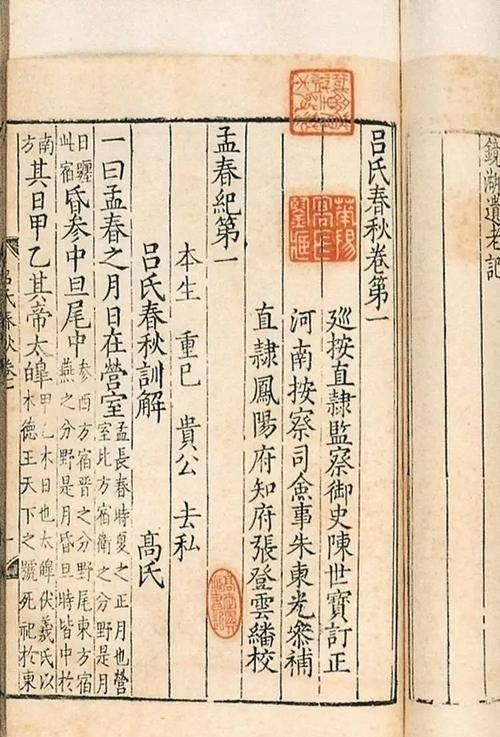 鏡湖遺老記
呂氏春秋卷第一
廵按直隷監察御史陳世寶訂正
河南按察司僉事朱東光叅補
直隷鳳陽府知府張登雲繙校
孟春紀第一
本生 重巳 貴公 去私
呂氏春秋訓解 高氏
一曰孟春之月日在營室孟長春時夏之正月也營室北方宿衛之分野是月
日躔此宿昏参中旦尾中参西方宿晉之分野尾東方宿燕之分野是月昏旦時皆中於
南方其日甲乙其帝太皥甲乙木日也太皥伏羲氏以木德王天下之號死祀於東
呂氏春秋卷一